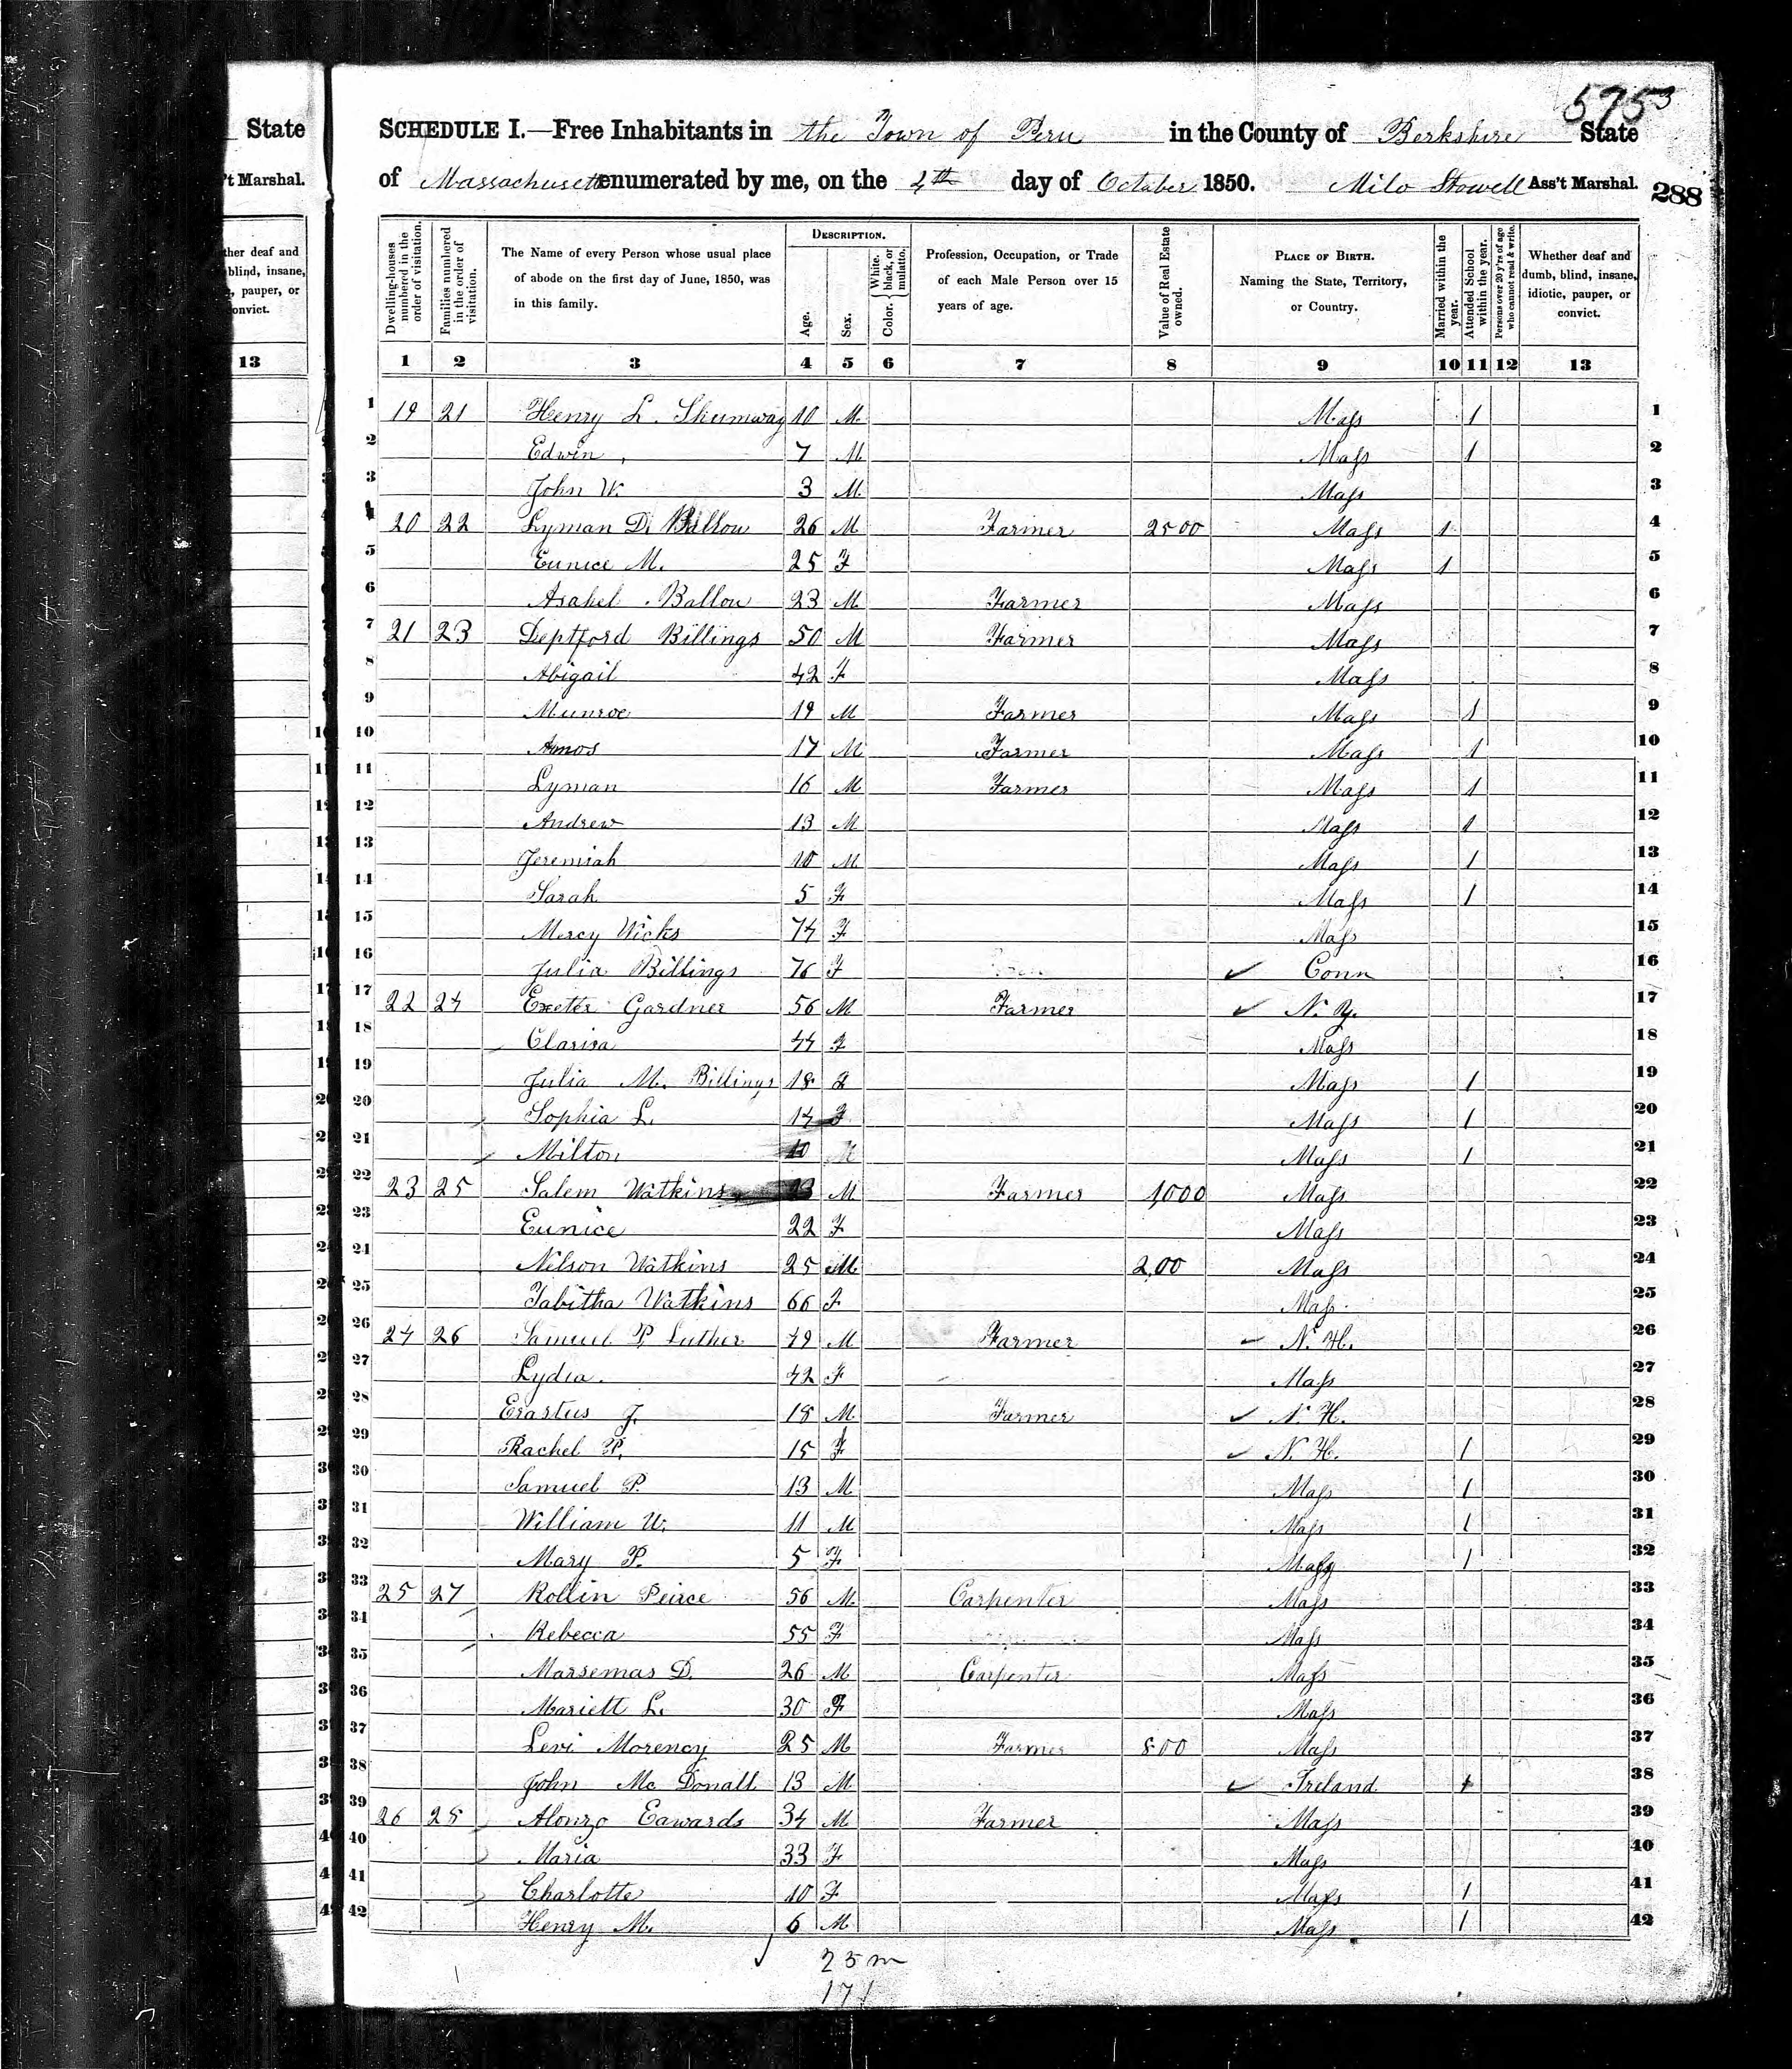 State
't Marshal.
ther deaf and
blind, insane,
, pauper, or
onvict.
13
575 3
SCHEDULE I.—Free Inhabitants in the Town of Peru in the County of Berkshire State
of Massachusetts enumerated by me, on the 4th day of October 1850. Milo Stowell Ass't Marshal.
288
Dwelling-houses numbered in the order of visitation.
Families numbered in the order of visitation.
The Name of every Person whose usual place of abode on the first day of June, 1850, was in this family.
DESCRIPTION.
Age.
Sex.
Color. { White, black, or mulatto.
Profession, Occupation, or Trade of each Male Person over 15 years of age.
Value of Real Estate owned.
PLACE OF BIRTH. Naming the State, Territory, or Country.
Married within the year.
Attended School within the year.
Persons over 20 y'rs of age who cannot read & write.
Whether deaf and dumb, blind, insane, idiotic, pauper, or convict.
1 2 3 4 5 6 7 8 9 10 11 12 13
1 19 21 Henry L. Shumway 10 M Mass 1 1
2 Edwin 7 M Mass 1 2
3 John W. 3 M Mass 3
4 20 22 Lyman D. Ballou 26 M Farmer 2500 Mass 1 4
5 Eunice M. 25 F Mass 1 5
6 Asahel Ballou 23 M Farmer Mass 6
7 21 23 Deptford Billings 50 M Farmer Mass 7
8 Abigail 42 F Mass 8
9 Munroe 19 M Farmer Mass 1 9
10 Amos 17 M Farmer Mass 1 10
11 Lyman 16 M Farmer Mass 1 11
12 Andrew 13 M Mass 1 12
13 Jeremiah 10 M Mass 1 13
14 Sarah 5 F Mass 1 14
15 Mercy Wicks 74 F Mass 15
16 Julia Billings 76 F ✓ Conn 16
17 22 24 Exeter Gardner 56 M Farmer ✓ N. Y. 17
18 Clarisa 44 F Mass 18
19 Julia M. Billings 18 F Mass 1 19
20 Sophia L. 14 F Mass 1 20
21 Milton 10 M Mass 1 21
22 23 25 Salem Watkins M Farmer 1,000 Mass 22
23 Eunice 22 F Mass 23
24 Nilson Watkins 25 M 2,00 Mass 24
25 Tabitha Watkins 66 F Mass 25
26 24 26 Samuel P. Luther 49 M Farmer ✓ N. H. 26
27 Lydia. 42 F Mass 27
28 Erastus J. 18 M Farmer ✓ N. H. 28
29 Rachel P. 15 F ✓ N. H. 1 29
30 Samuel P. 13 M Mass 1 30
31 William W. 11 M Mass 1 31
32 Mary P. 5 F Mass 1 32
33 25 27 Rollin Peirce 56 M Carpenter Mass 33
34 Rebecca 55 F Mass 34
35 Marsemas D. 26 M Carpenter Mass 35
36 Mariett L. 30 F Mass 36
37 Levi Morency 25 M Farmer 800 Mass 37
38 John Mc Donall 13 M ✓ Ireland 1 38
39 26 28 Alonzo Edwards 34 M Farmer Mass 39
40 Maria 33 F Mass 40
41 Charlotte 10 F Mass 1 41
42 Henry M. 6 M Mass 1 42
25 m
17 f